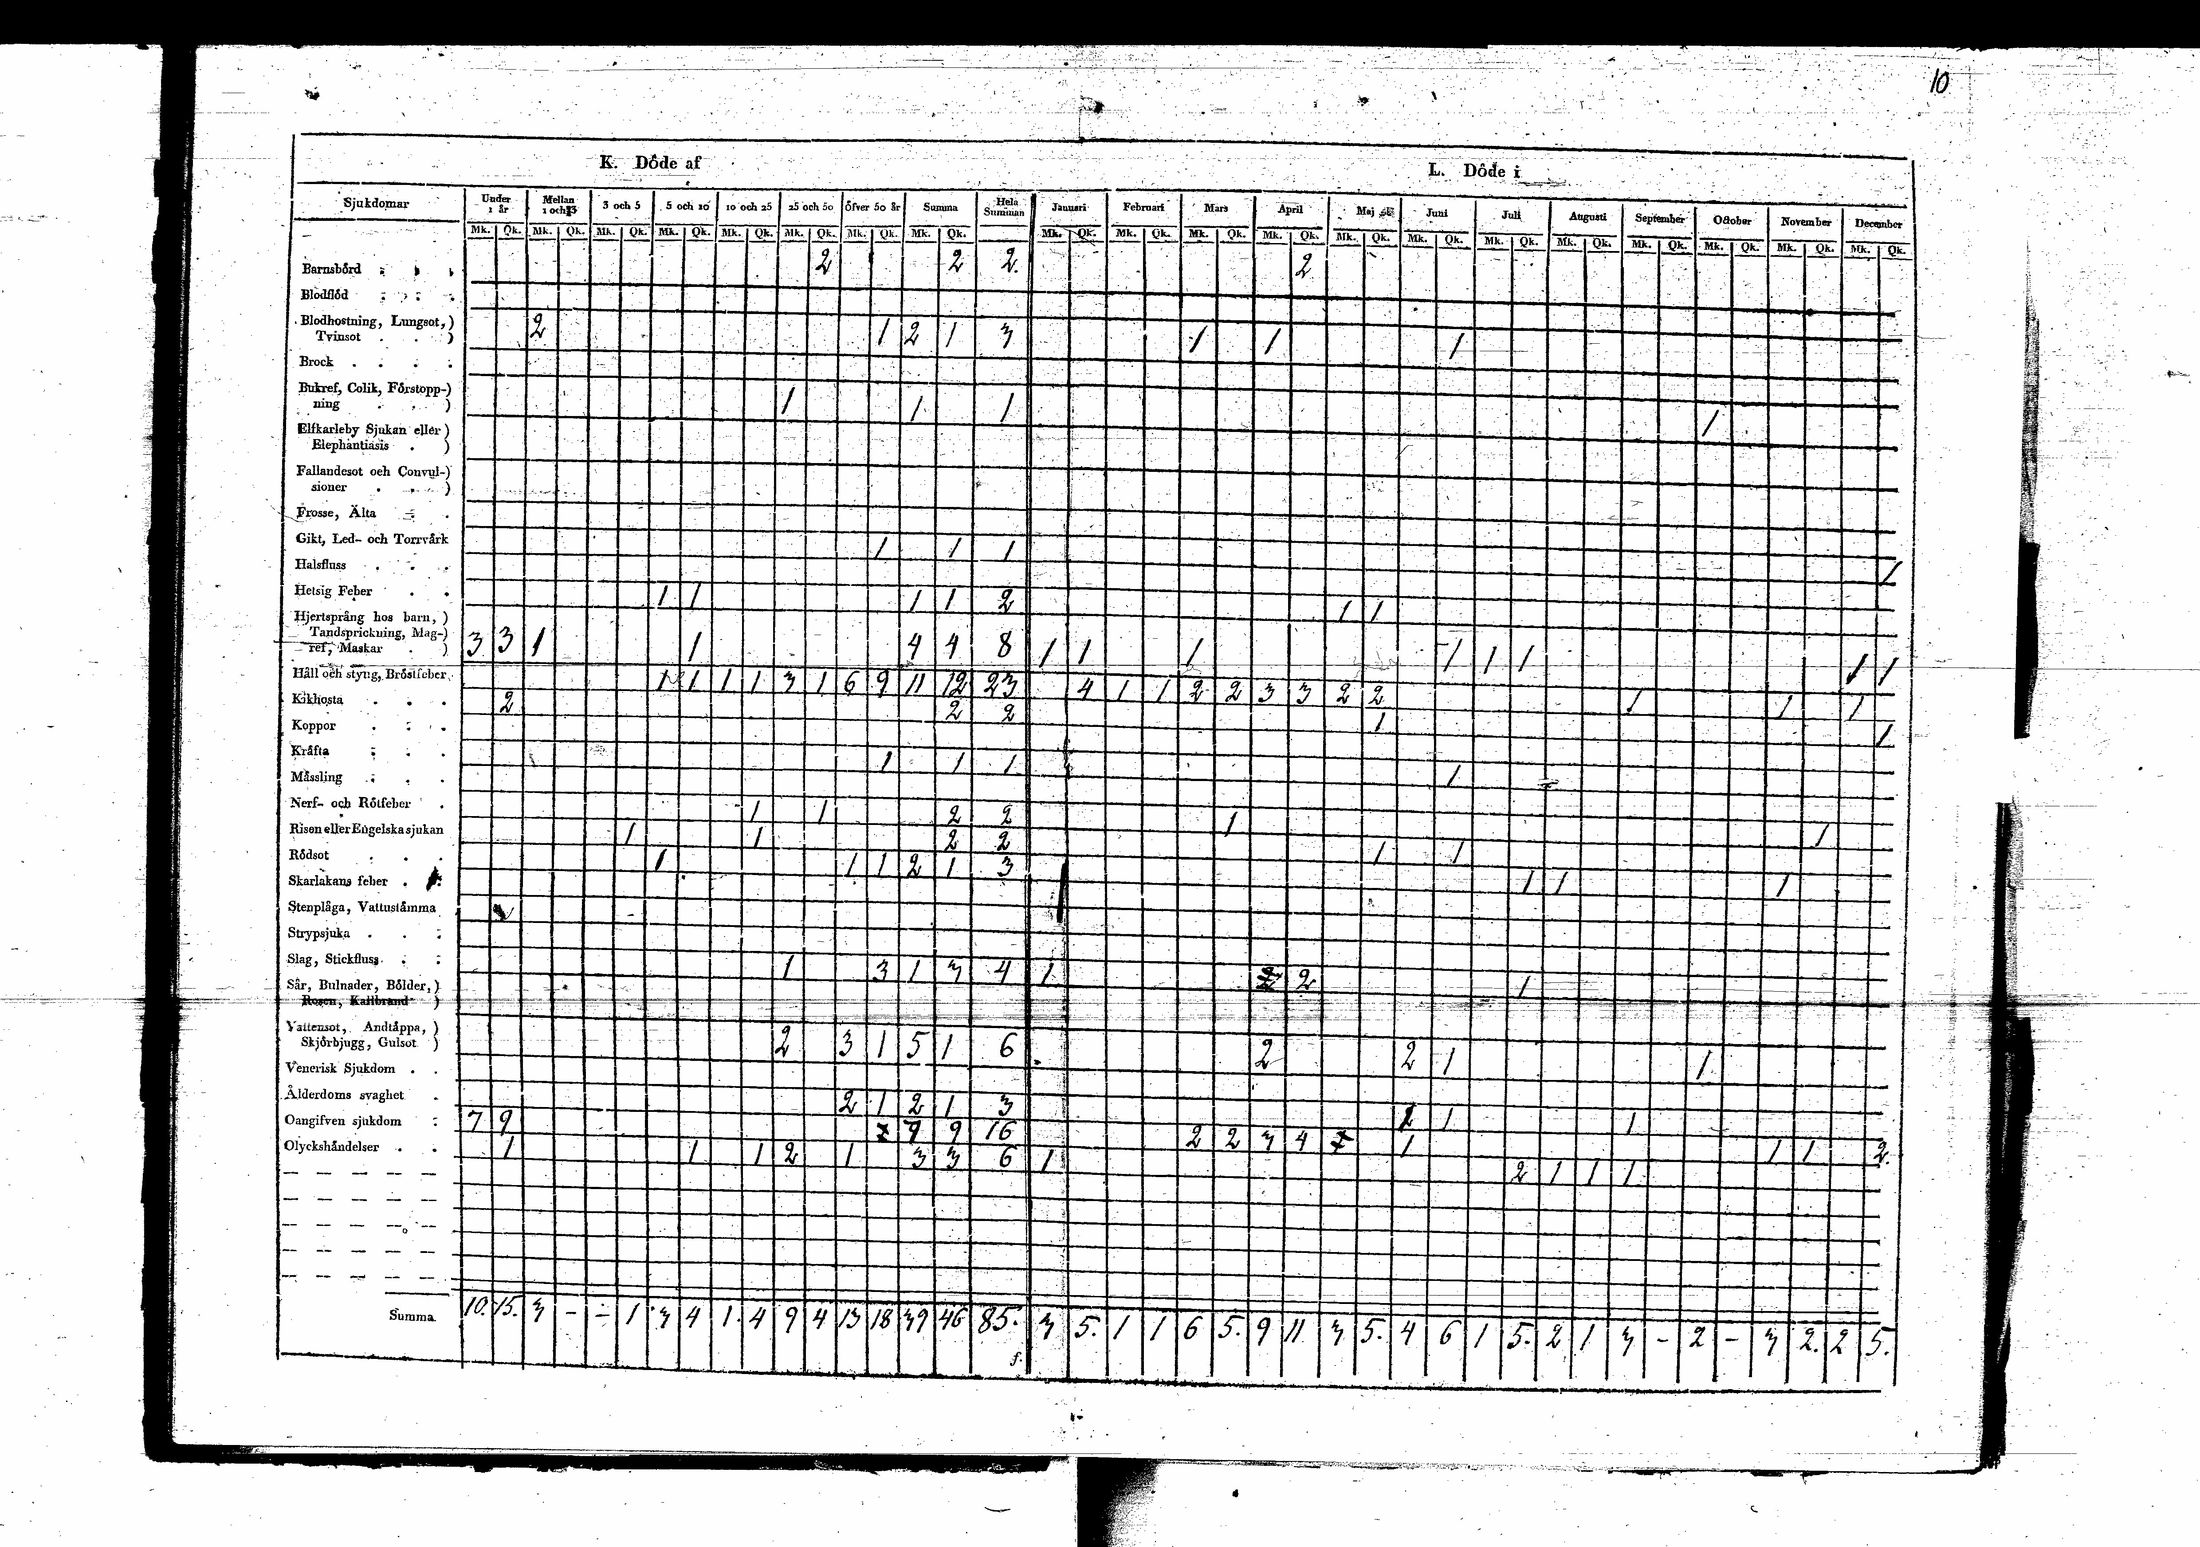 10
K. Döde af L. Döde i
Sjukdomar Under 1 år Mellan 1 och 3 3 och 5 5 och 10 10 och 25 25 och 50 Öfver 50 år Summa Hela Summan Januari Februari Mars April Maj Juni Juli Augusti September October November December
Mk. Qk. Mk. Qk. Mk. Qk. Mk. Qk. Mk. Qk. Mk. Qk. Mk. Qk. Mk. Qk. Mk. Qk. Mk. Qk. Mk. Qk. Mk. Qk. Mk. Qk. Mk. Qk. Mk. Qk. Mk. Qk. Mk. Qk. Mk. Qk. Mk. Qk. Mk. Qk.
Barnsbörd 2 2 2. 2
Blodflöd
Blodhostning, Lungsot,)
Tvinsot . . ) 2 1 2 1 3 1 1 1
Brock . . . .
Bukref, Colik, Förstopp-)
ning . . ) 1 1 1 1
Elfkarleby Sjukan eller)
Elephantiasis . )
Fallandesot och Convul-)
sioner . . )
Frosse, Älta
Gikt, Led- och Torrvärk 1 1 1 1
Halsfluss . . .
Hetsig Feber . . 1 1 1 1 2 1 1
Hjertsprång hos barn, )
Tandsprickning, Mag-)
ref, Maskar . ) 3 3 1 1 4 4 8 1 1 1 1 1 1 1 1
Håll och styng, Bröstfeber 1 1 1 1 3 1 6 9 11 12 23 4 1 1 2 2 3 3 2 2 1 1 1
Kikhosta . . . 2 2 2 1 1
Koppor . . .
Kräfta . . . 1 1 1 1
Mässling . . .
Nerf- och Rötfeber . 1 1 2 2 1 1
Risen eller Engelska sjukan 1 1 2 2 1 1
Rödsot . . . 1 1 1 2 1 3 1 1 1
Skarlakans feber .
Stenplåga, Vattustämma
Strypsjuka . . .
Slag, Stickfluss . . 1 3 1 3 4 1 2 1
Sår, Bulnader, Bölder,)
Rosen, Kallbrand )
Vattensot, Andtäppa, )
Skjörbjugg, Gulsot ) 2 3 1 5 1 6 2 2 1 1
Venerisk Sjukdom . .
Ålderdoms svaghet . 2 1 2 1 3 1 1
Oangifven sjukdom 7 9 9 16 2 2 3 4 1 1 1 2.
Olyckshändelser . . 1 1 1 2 1 3 3 6 1 2 1 1 1
Summa 10. 15. 3 - - 1 3 4 1. 4 9 4 13 18 39 46 85. 3 5. 1 1 6 5. 9 11 3 5. 4 6 1 5. 2 1 3 - 2 - 3 2. 2 5.